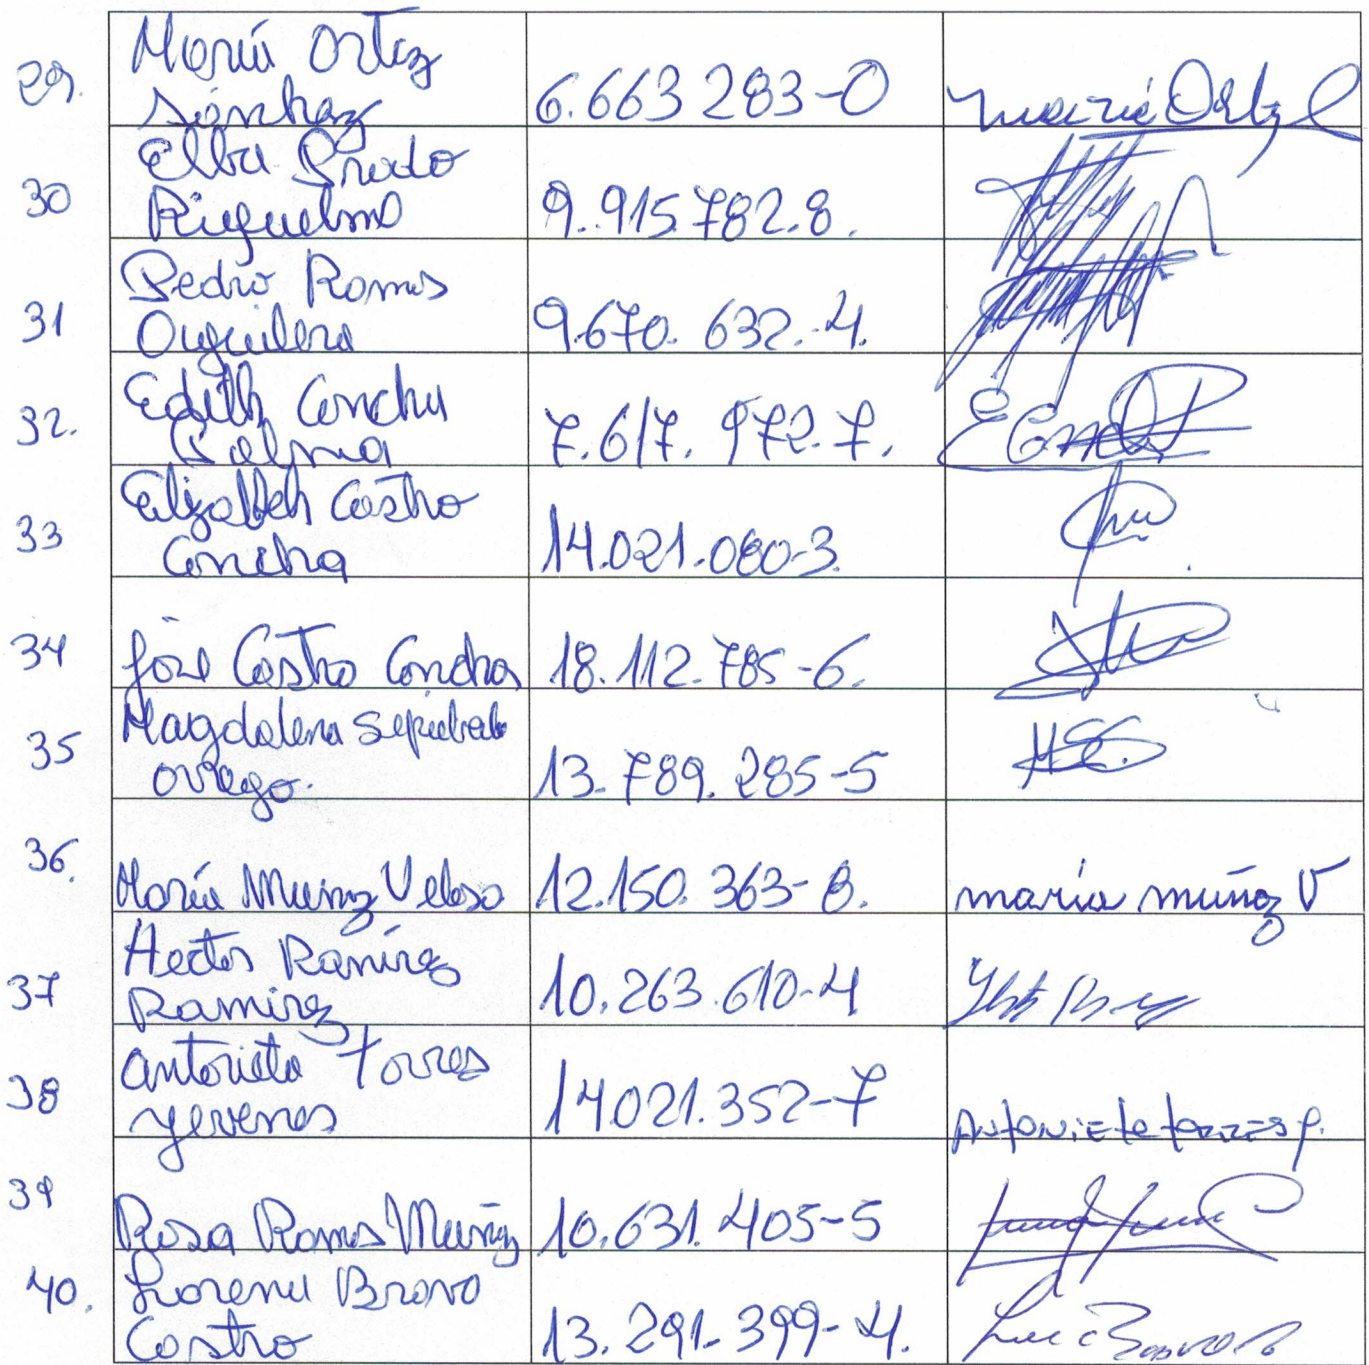 29. María Ortiz
Sánchez 6.663 283-0 María Ortiz
30 Elba Prado
Riquelme 9.915.782.8.
31 Pedro Ramos
Aguilera 9.670. 632.-4.
32. Edith Concha
Palma 7.617. 972-7. E Concha
33 Elizabeth Castro
Concha 14.021.080-3.
34 José Castro Concha 18.112.785-6.
35 Magdalena Sepúlveda
Orrego. 13.789.285-5
36. María Muñoz Veloso 12.150.363-8. maria muñoz V
37 Hector Ramírez
Ramirez 10.263.610-4
38 Antonieta Torres
Yevenes 14021.352-7 Antonieta torres y.
39 Rosa Ramos Muñoz 10.631.405-5
40. Lorena Bravo
Castro 13.291.399-4.